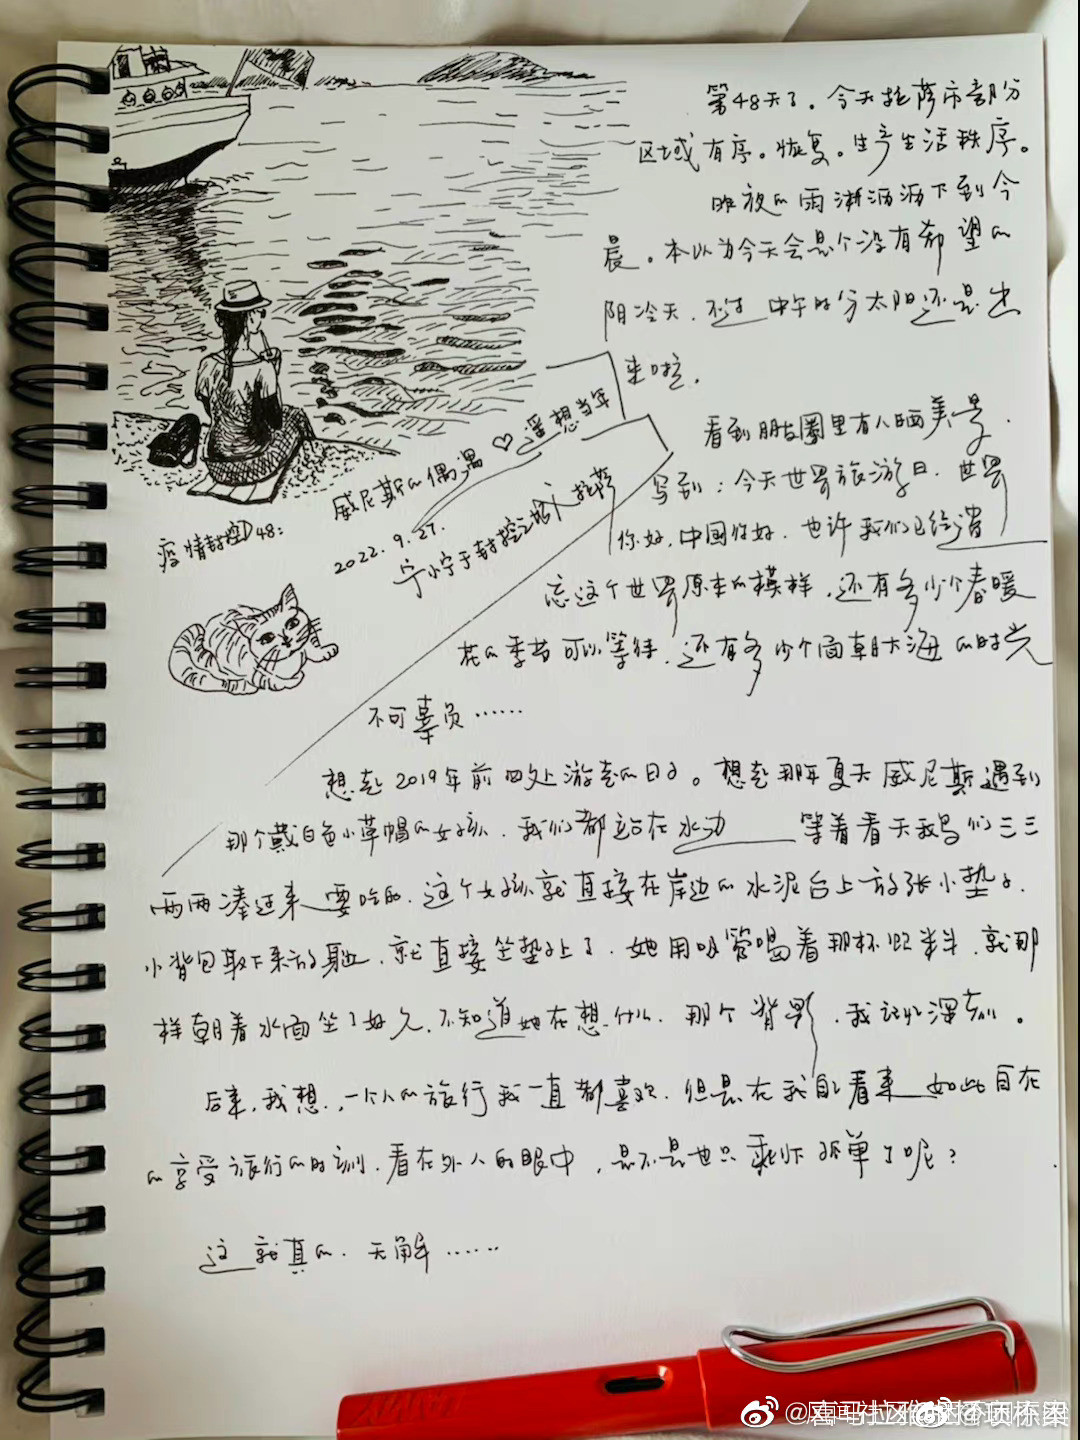 第48天了。今天拉萨市部分
区域有序。恢复。生产生活秩序。
昨夜的雨淅沥沥下到今
晨。本以为今天会是个没有希望的
阴冷天，不过中午时分太阳还是出
来啦，
看到朋友圈里有人晒美景，
写到：今天世界旅游日，世界
你好，中国你好，也许我们已经遗
忘这个世界原本的模样，还有多少个春暖
花的季节可以等待，还有多少个面朝大海的时光
不可辜负……
♡遥想当年
威尼斯的偶遇
疫情封控D48：
2022.9.27.
宁小宁于封控之城 拉萨
想起2019年前四处游走的日子。想起那年夏天威尼斯遇到
那个戴白色小草帽的女孩，我们都站在水边 等着看天鹅们三三
两两凑过来要吃的，这个女孩就直接在岸边的水泥台上放张小垫子，
小背包取下来放身边，就直接坐垫子上了，她用吸管喝着那杯饮料，就那
样朝着水面坐了好久，不知道她在想什么，那个背影，我记忆深刻。
后来，我想，一个人的旅行我一直都喜欢，但是在我自己看来如此自在
的享受旅行的时刻，看在外人的眼中，是不是也只剩下孤单了呢？
这就真的，无解……
LAMY